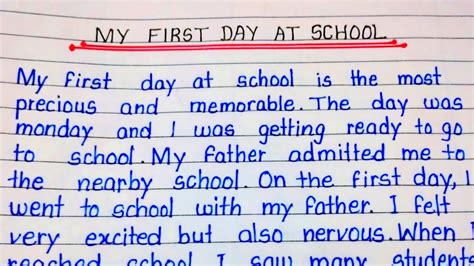 MY FIRST DAY AT SCHOOL
My first day at school is the most
precious and memorable. The day was
monday and I was getting ready to go
to school. My father admitted me to
the nearby school. On the first day, I
went to school with my father. I felt
very excited but also nervous. When I
reached school I saw many students